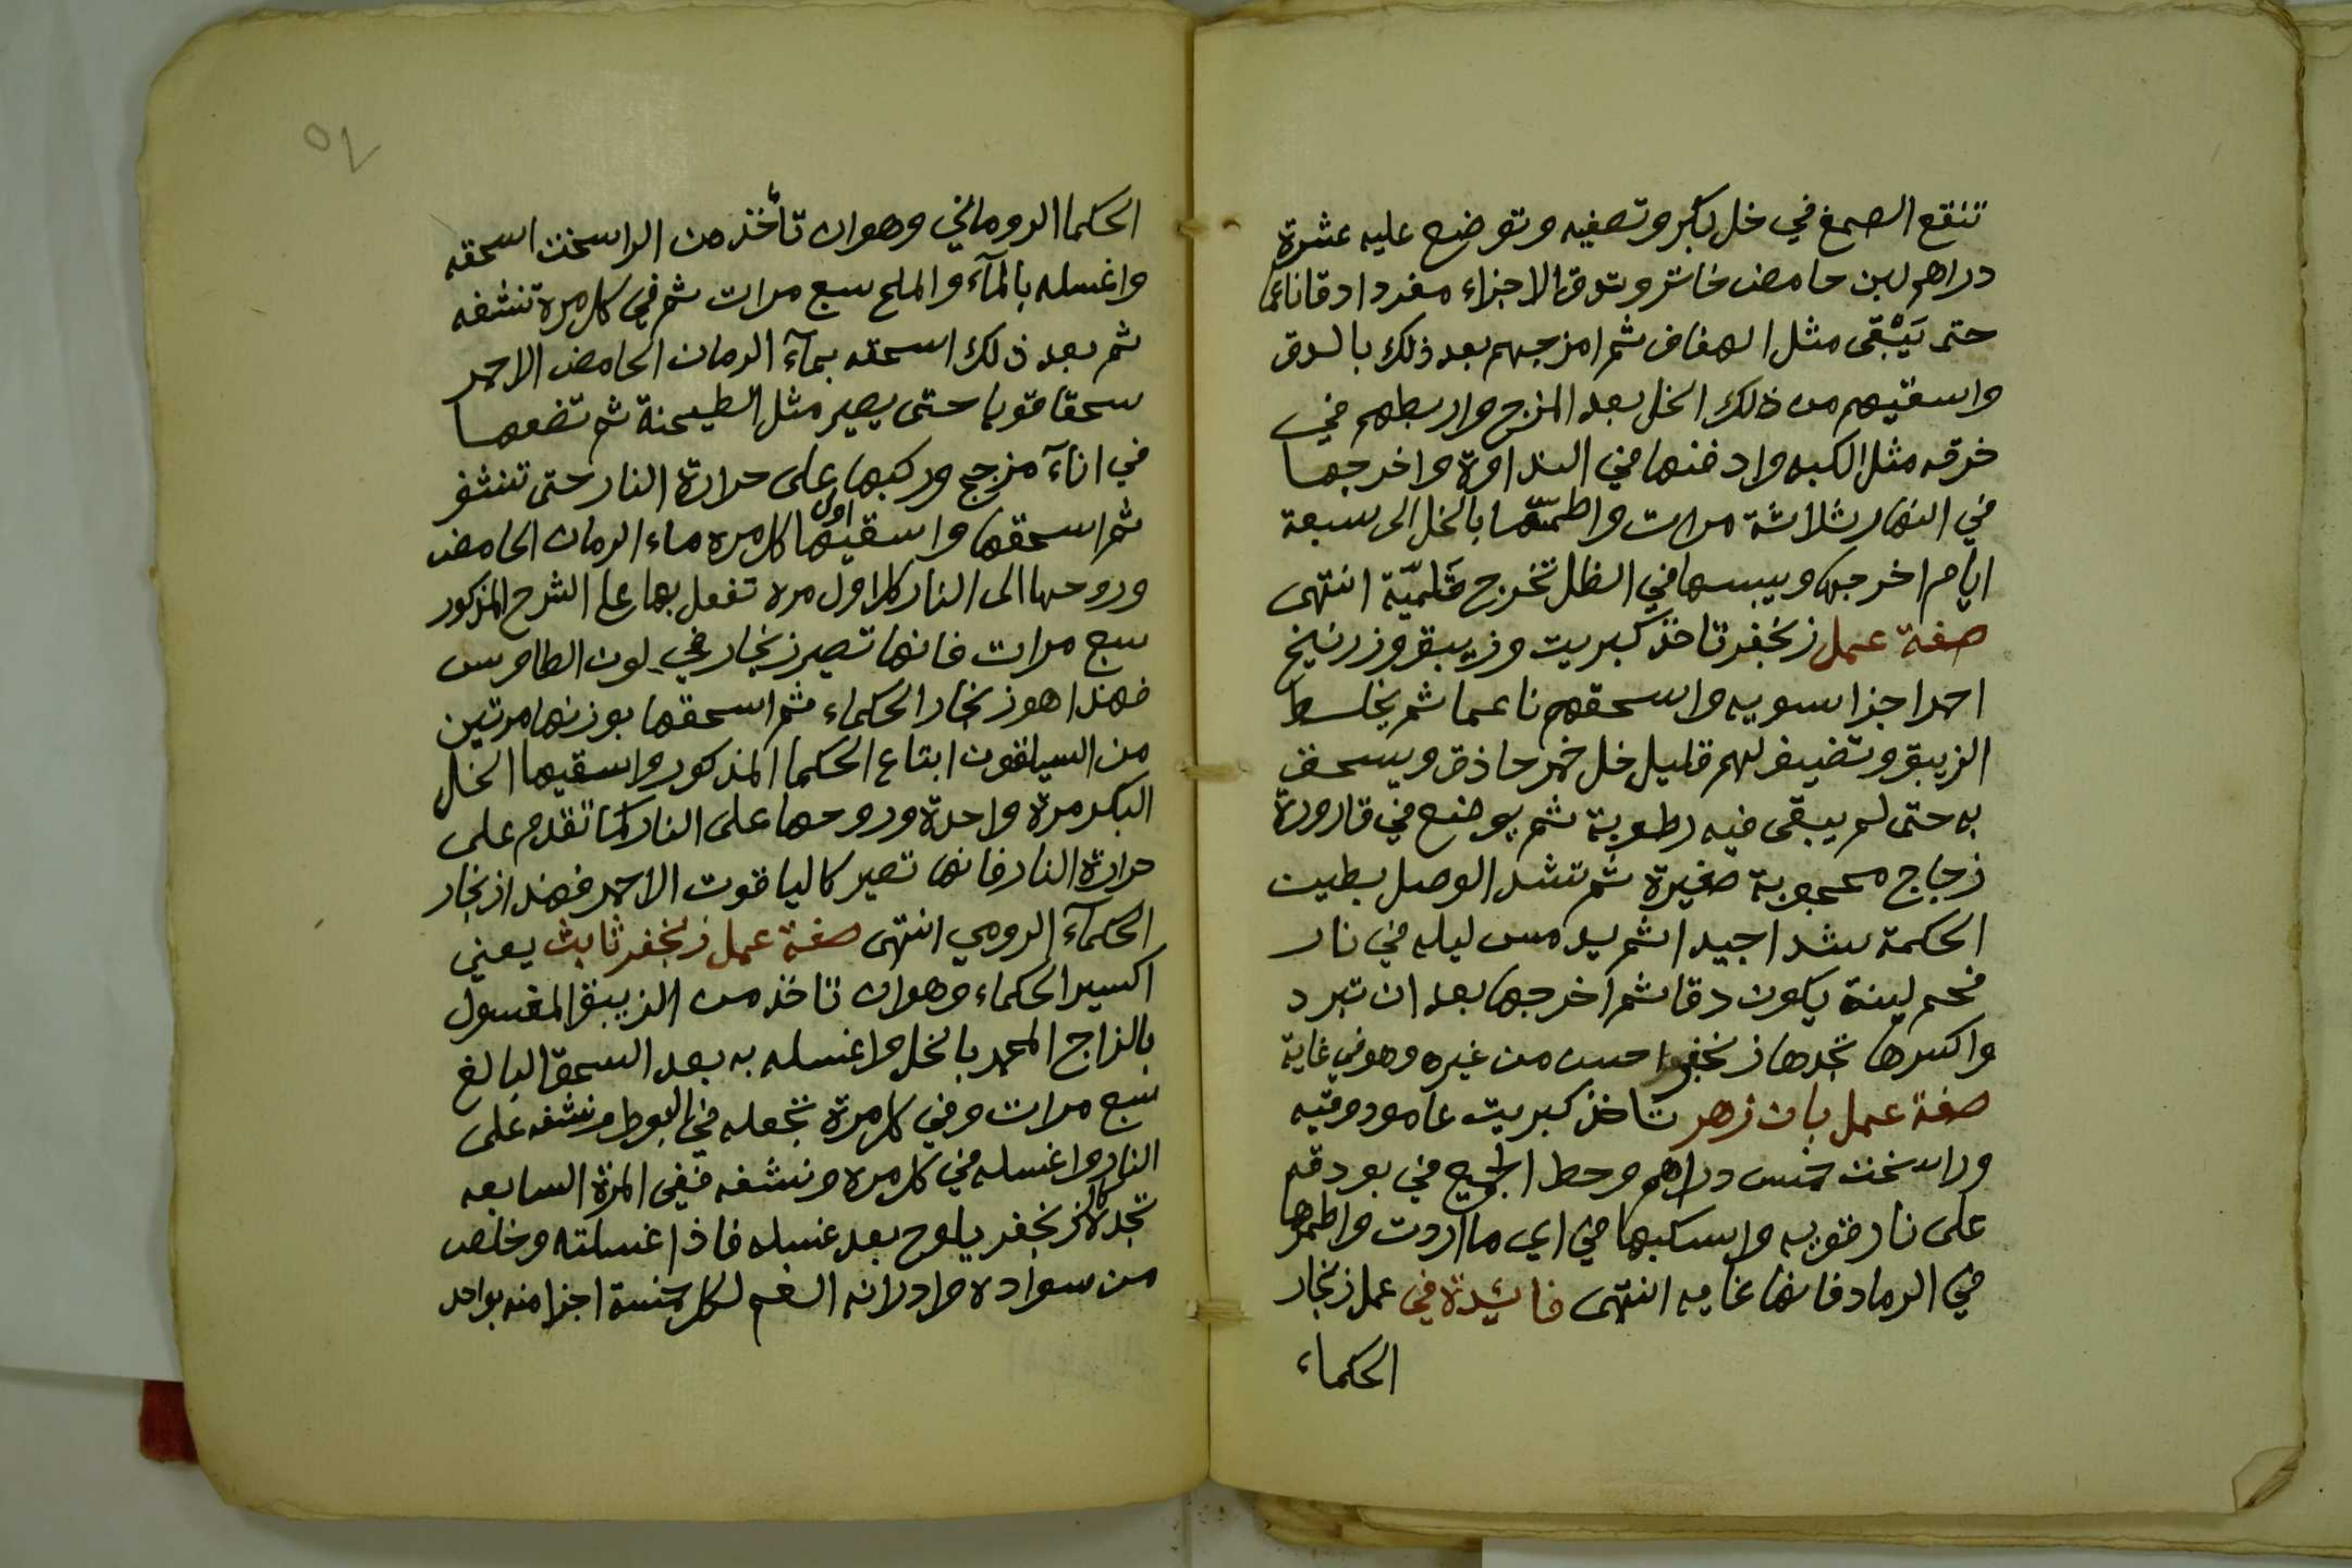 تنقع الصمغ في خل بكر وتصفيه وتوضع عليه عشرة
دراهم لبن حامض خاثر وتدق الاجزاء مفردا دقا ناعما
حتى يَبْقى مثل الهفاف ثم امزجهم بعد ذلك بالدق
واسقيهم من ذلك الخل بعد المزج واربطهم في
خرقه مثل الكبه وادفنها في النداوة واخرجها
في النهار ثلاثة مرات واطمسّها بالخل الى سبعة
ايام اخرجها ويبسها في الظل تخرج قلميّة انتهى
صفة عمل زنجفر تاخذ كبريت وزيبق وزرنيخ
احمر اجزا سويه واسحقهم ناعما ثم يخلط
الزيبق وتضيف لهم قليل خل خمر حاذق ويسحق
به حتى لم يبقى فيه رطوبة ثم يوضع في قارورة
زجاج محجوبة صغيرة ثم تشد الوصل بطين
الحكمة شدا جيدا ثم يدمس ليله في نار
فحم لينة يكون دقا ثم اخرجها بعد ان تبرد
واكسرها تجدها زنجفرا حسن من غيره وهو في غاية
صفة عمل بان زهر تاخذ كبريت عامود وقيه
وراسخت خمس دراهم وحط الجميع في بودقه
على نار قويه واسكبها في اي ما اردت واطمرها
في الرماد فانها غايه انتهى فائدة في عمل زنجار
الحكماء
الحكما الروماني وهو ان تأخذ من الراسخت اسحقه
واغسله بالمآء والملح سبع مرات ثم في كل مرة تنشفه
ثم بعد ذلك اسحقه بمآء الرمان الحامض الاحمر
سحقا قويا حتى يصير مثل الطحينة ثم تضعها
في انآء مزجج وركبها على حرارة النار حتى تنشف
ثم اسحقها واسقيها اول كل مره ماء الرمان الحامض
وروحها الى النار كل اول مرة تفعل بها على الشرح المذكور
سبع مرات فانها تصير زنجار في لون الطاوس
فهذا هو زنجار الحكماء ثم اسحقها بوزنها مرتين
من السيلقون ابتاع الحكما المذكور واسقيها الخل
البكر مرة واحدة وروحها على النار كما تقدم على
حرارة النار فانها تصير كالياقوت الاحمر فهذا زنجار
الحكمآء الرومي انتهى صفة عمل زنجفر ثابت يعني
اكسير الحكماء وهو ان تاخذ من الزيبق المغسول
بالزاج المحمر بالخل واغسله به بعد السحق البالغ
سبع مرات وفي كل مرة تجعله في البوط ونشفه على
النار واغسله في كل مره ونشفه ففي المرة السابعه
تجده كالزنجفر يلوح بعد غسله فاذا غسلته وخلص
من سواده وادرانه القم لكل خمسة اجزا منه بواحد